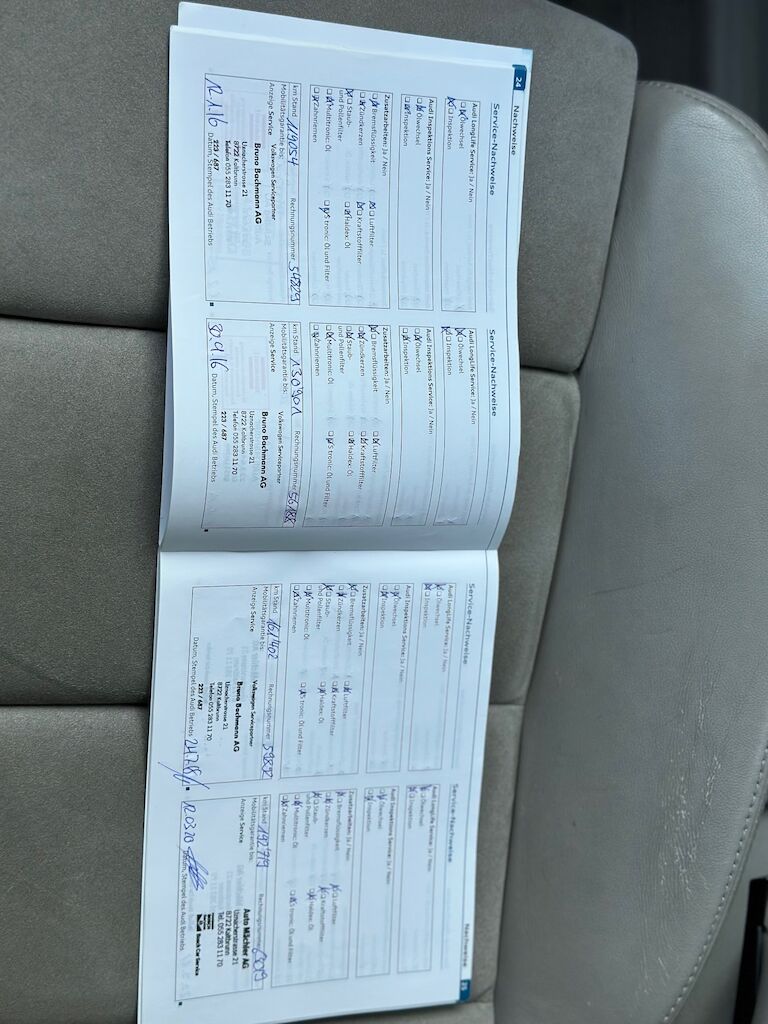 24
Nachweise
Service-Nachweise
Audi LongLife Service: Ja / Nein
Ölwechsel
Inspektion
Audi Inspektions Service: Ja / Nein
Ölwechsel
Inspektion
Zusatzarbeiten: Ja / Nein
Bremsflüssigkeit Luftfilter
Zündkerzen Kraftstofffilter
Staub- Haldex: Öl
und Pollenfilter
Multitronic: Öl S tronic: Öl und Filter
Zahnriemen
km Stand 119054 Rechnungsnummer 54829
Mobilitätsgarantie bis:
Anzeige Service Volkswagen Servicepartner
Bruno Bachmann AG
Uznacherstrasse 21
8722 Kaltbrunn
Telefon 055 283 11 70
223 / 687
12.1.16 Datum, Stempel des Audi Betriebs
Service-Nachweise
Audi LongLife Service: Ja / Nein
Ölwechsel
Inspektion
Audi Inspektions Service: Ja / Nein
Ölwechsel
Inspektion
Zusatzarbeiten: Ja / Nein
Bremsflüssigkeit Luftfilter
Zündkerzen Kraftstofffilter
Staub- Haldex: Öl
und Pollenfilter
Multitronic: Öl S tronic: Öl und Filter
Zahnriemen
km Stand 130901 Rechnungsnummer 56188
Mobilitätsgarantie bis:
Anzeige Service Volkswagen Servicepartner
Bruno Bachmann AG
Uznacherstrasse 21
8722 Kaltbrunn
Telefon 055 283 11 70
223 / 687
30.9.16 Datum, Stempel des Audi Betriebs
Service-Nachweise
Audi LongLife Service: Ja / Nein
Ölwechsel
Inspektion
Audi Inspektions Service: Ja / Nein
Ölwechsel
Inspektion
Zusatzarbeiten: Ja / Nein
Bremsflüssigkeit Luftfilter
Zündkerzen Kraftstofffilter
Staub- Haldex: Öl
und Pollenfilter
Multitronic: Öl S tronic: Öl und Filter
Zahnriemen
km Stand 161'402 Rechnungsnummer
Mobilitätsgarantie bis:
Anzeige Service Volkswagen Servicepartner
Bruno Bachmann AG
Uznacherstrasse 21
8722 Kaltbrunn
Telefon 055 283 11 70
223 / 687
Datum, Stempel des Audi Betriebs
Nachweise
25
Service-Nachweise
Audi LongLife Service: Ja / Nein
Ölwechsel
Inspektion
Audi Inspektions Service: Ja / Nein
Ölwechsel
Inspektion
Zusatzarbeiten: Ja / Nein
Bremsflüssigkeit Luftfilter
Zündkerzen Kraftstofffilter
Staub- Haldex: Öl
und Pollenfilter
Multitronic: Öl S tronic: Öl und Filter
Zahnriemen
km Stand 192719 Rechnungsnummer
Mobilitätsgarantie bis:
Anzeige Service
Auto Mächler AG
Uznacherstrasse 21
8722 Kaltbrunn
Tel. 055 283 11 70
Bosch Car Service
12.03.20 Datum, Stempel des Audi Betriebs